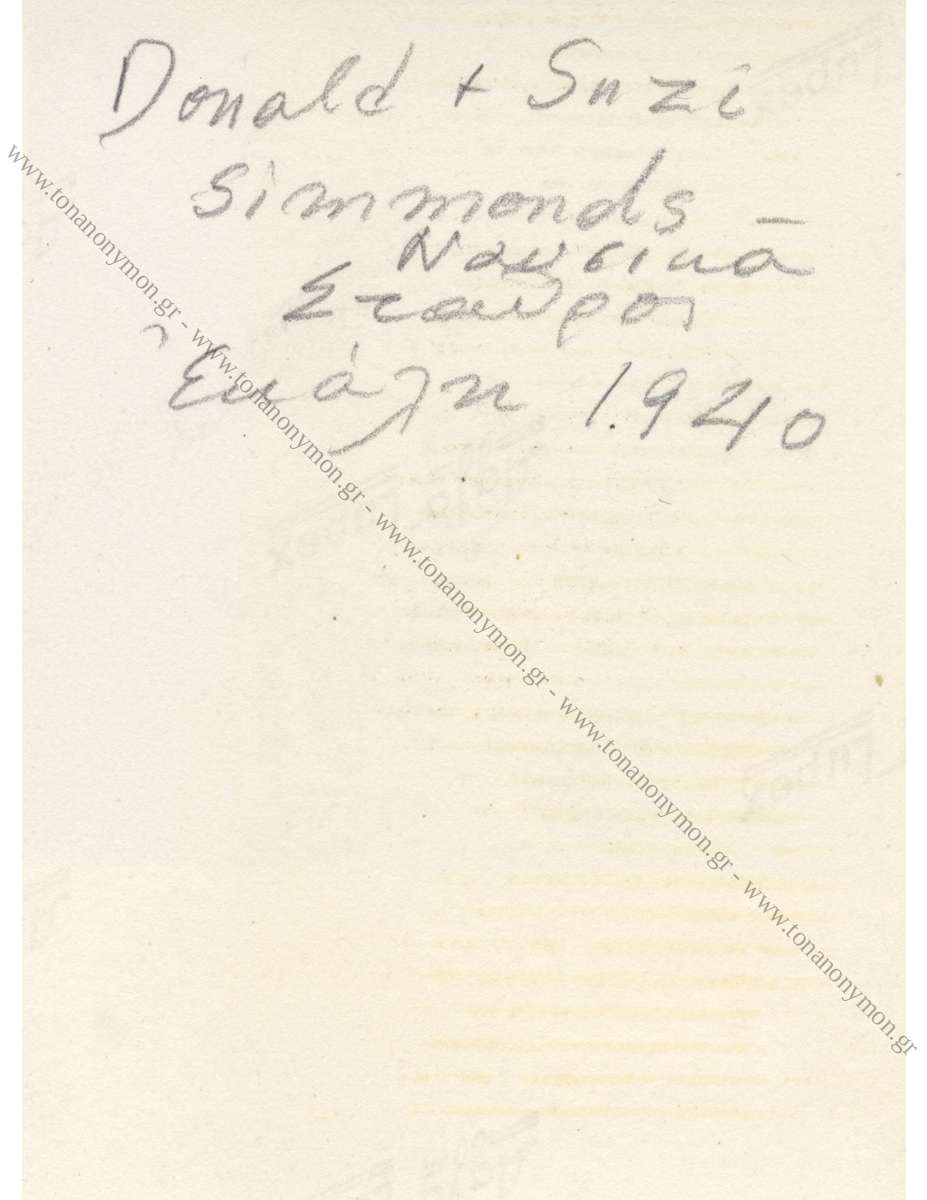 Donald + Suzi
Simmonds –
Ναυσικά
Σταυρος
Σκάλη 1.940
www.tonanonymon.gr - www.tonanonymon.gr - www.tonanonymon.gr - www.tonanonymon.gr - www.tonanonymon.gr